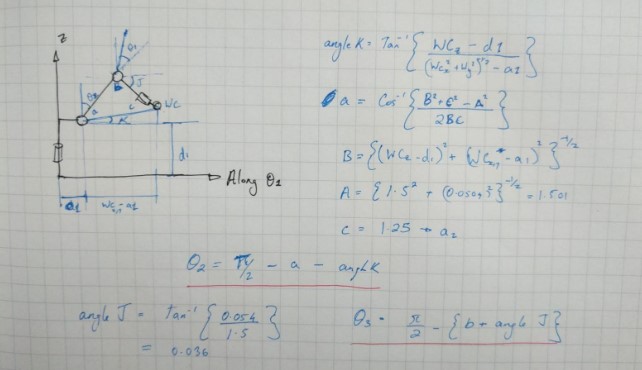 z
θ1
θ2
B
J
a
c
K
WC
d1
Along θ1
a1
WCx,y-a1
angle K = Tan⁻¹ { WCz - d1 / (WCx² + Wy²)^1/2 - a1 }
a = Cos⁻¹ { B² + C² - A² / 2BC }
B = { (WCz - d1)² + (WCx,y - a1)² }^-1/2
A = { 1.5² + (0.054)² }^-1/2 = 1.501
C = 1.25 → a2
θ2 = π/2 - a - angle K
angle J = tan⁻¹ { 0.054 / 1.5 }
= 0.036
θ3 = π/2 - { b + angle J }